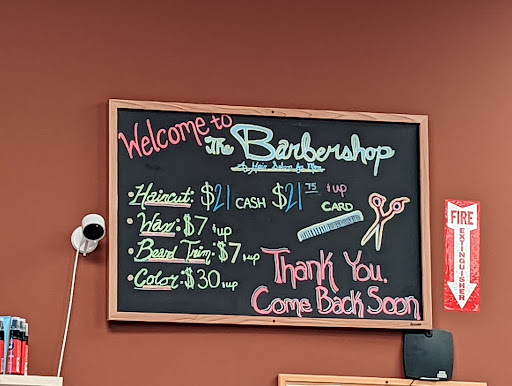 Welcome to
The Barbershop
A Hair Salon for Men
• Haircut: $21 CASH $21.75 & up CARD
• Wax: $7 & up
• Beard Trim: $7 & up
• Color: $30 & up
Thank You.
Come Back Soon
FIRE
EXTINGUISHER